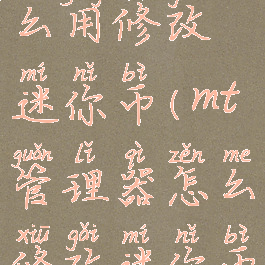 么用修改
mí nǐ bì
迷你币(mt
guǎn lǐ qì zěn me
管理器怎么
xiū gǎi mí nǐ bì
修改迷你币